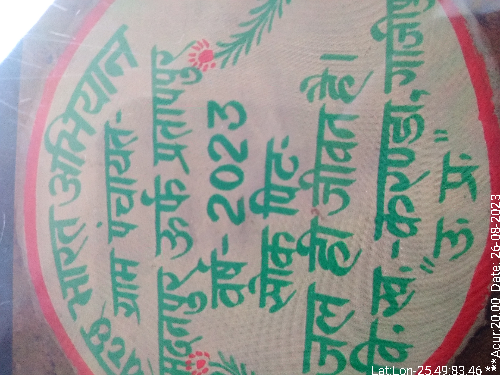 स्वच्छ भारत अभियान
ग्राम पंचायत-
मदनपुर ऊर्फ प्रतापपुर
वर्ष- 2023
सोक पिटः
जल ही जीवन है।
वि. ख.-करण्डा, गाजीपुर
"उ. प्र."
Lat Lon-25.49,83.46 ***Acur:20.00 Date: 26-08-2023